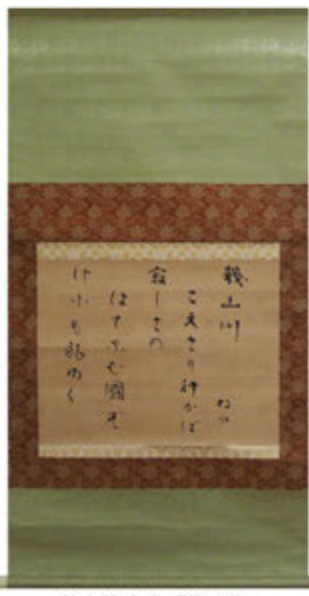 幾山川
こえさり行かば
寂しさの
はてなむ國ぞ
けふも旅ゆく